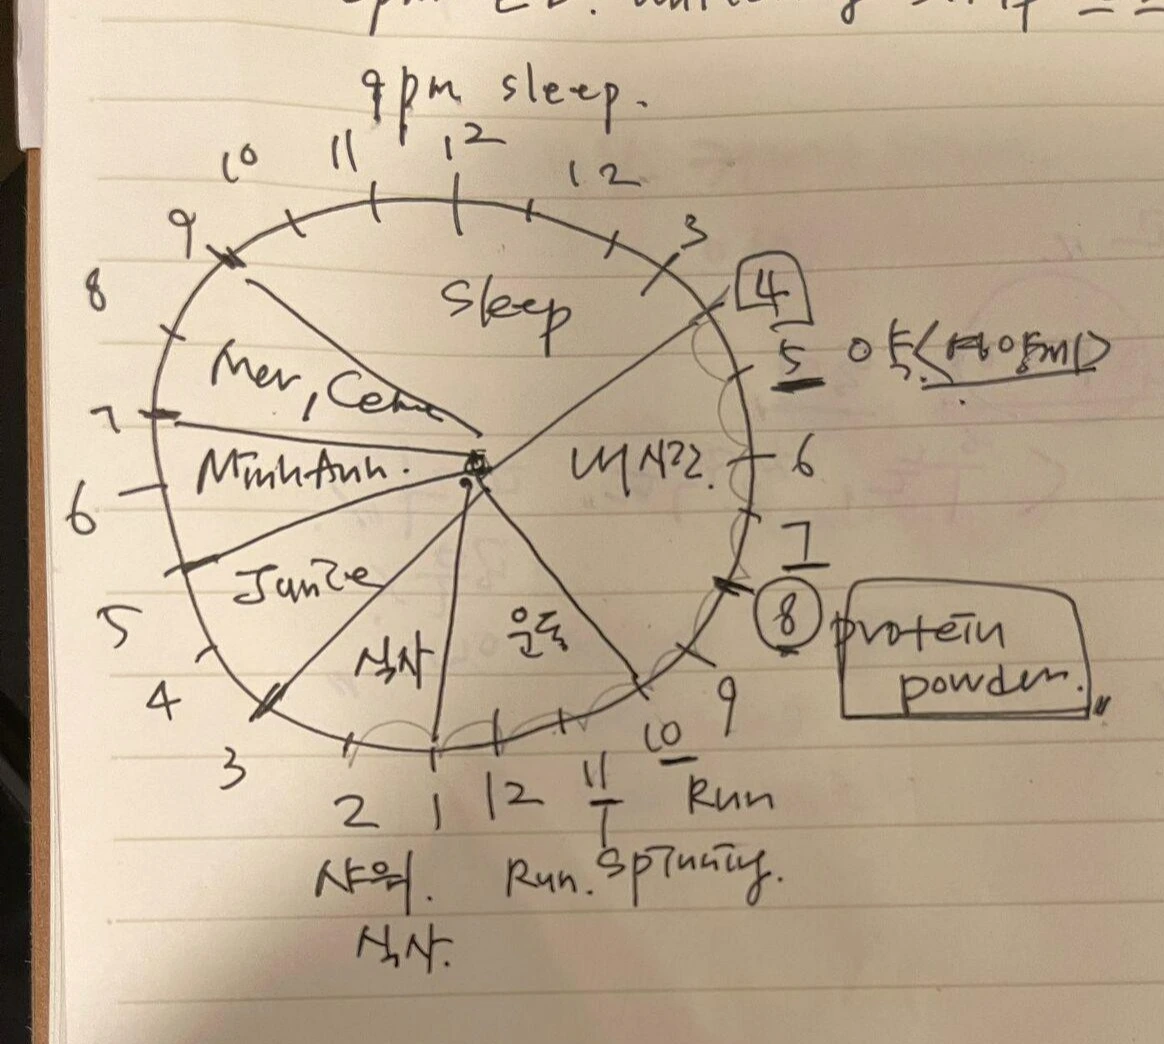 9pm sleep.
10 11 12
12
9
3
8
4
Sleep
5 약
Mer,
7
6
Minh Anh.
6
7
5
Junze
운동
8 protein
powder.
식사
4
9
3
10
2 1 12 11 Run
샤워. Run. Spinning.
식사.